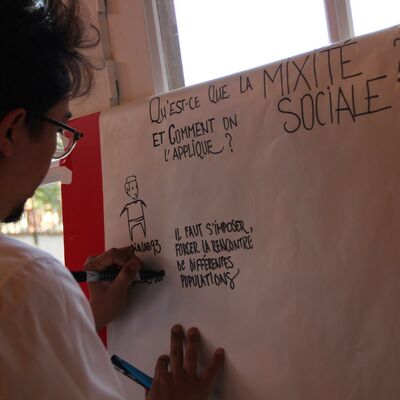 QU'EST-CE QUE LA MIXITÉ SOCIALE ?
ET COMMENT ON
L'APPLIQUE ?
IL FAUT S'IMPOSER,
FORCER LA RENCONTRE
DE DIFFÉRENTES
POPULATIONS